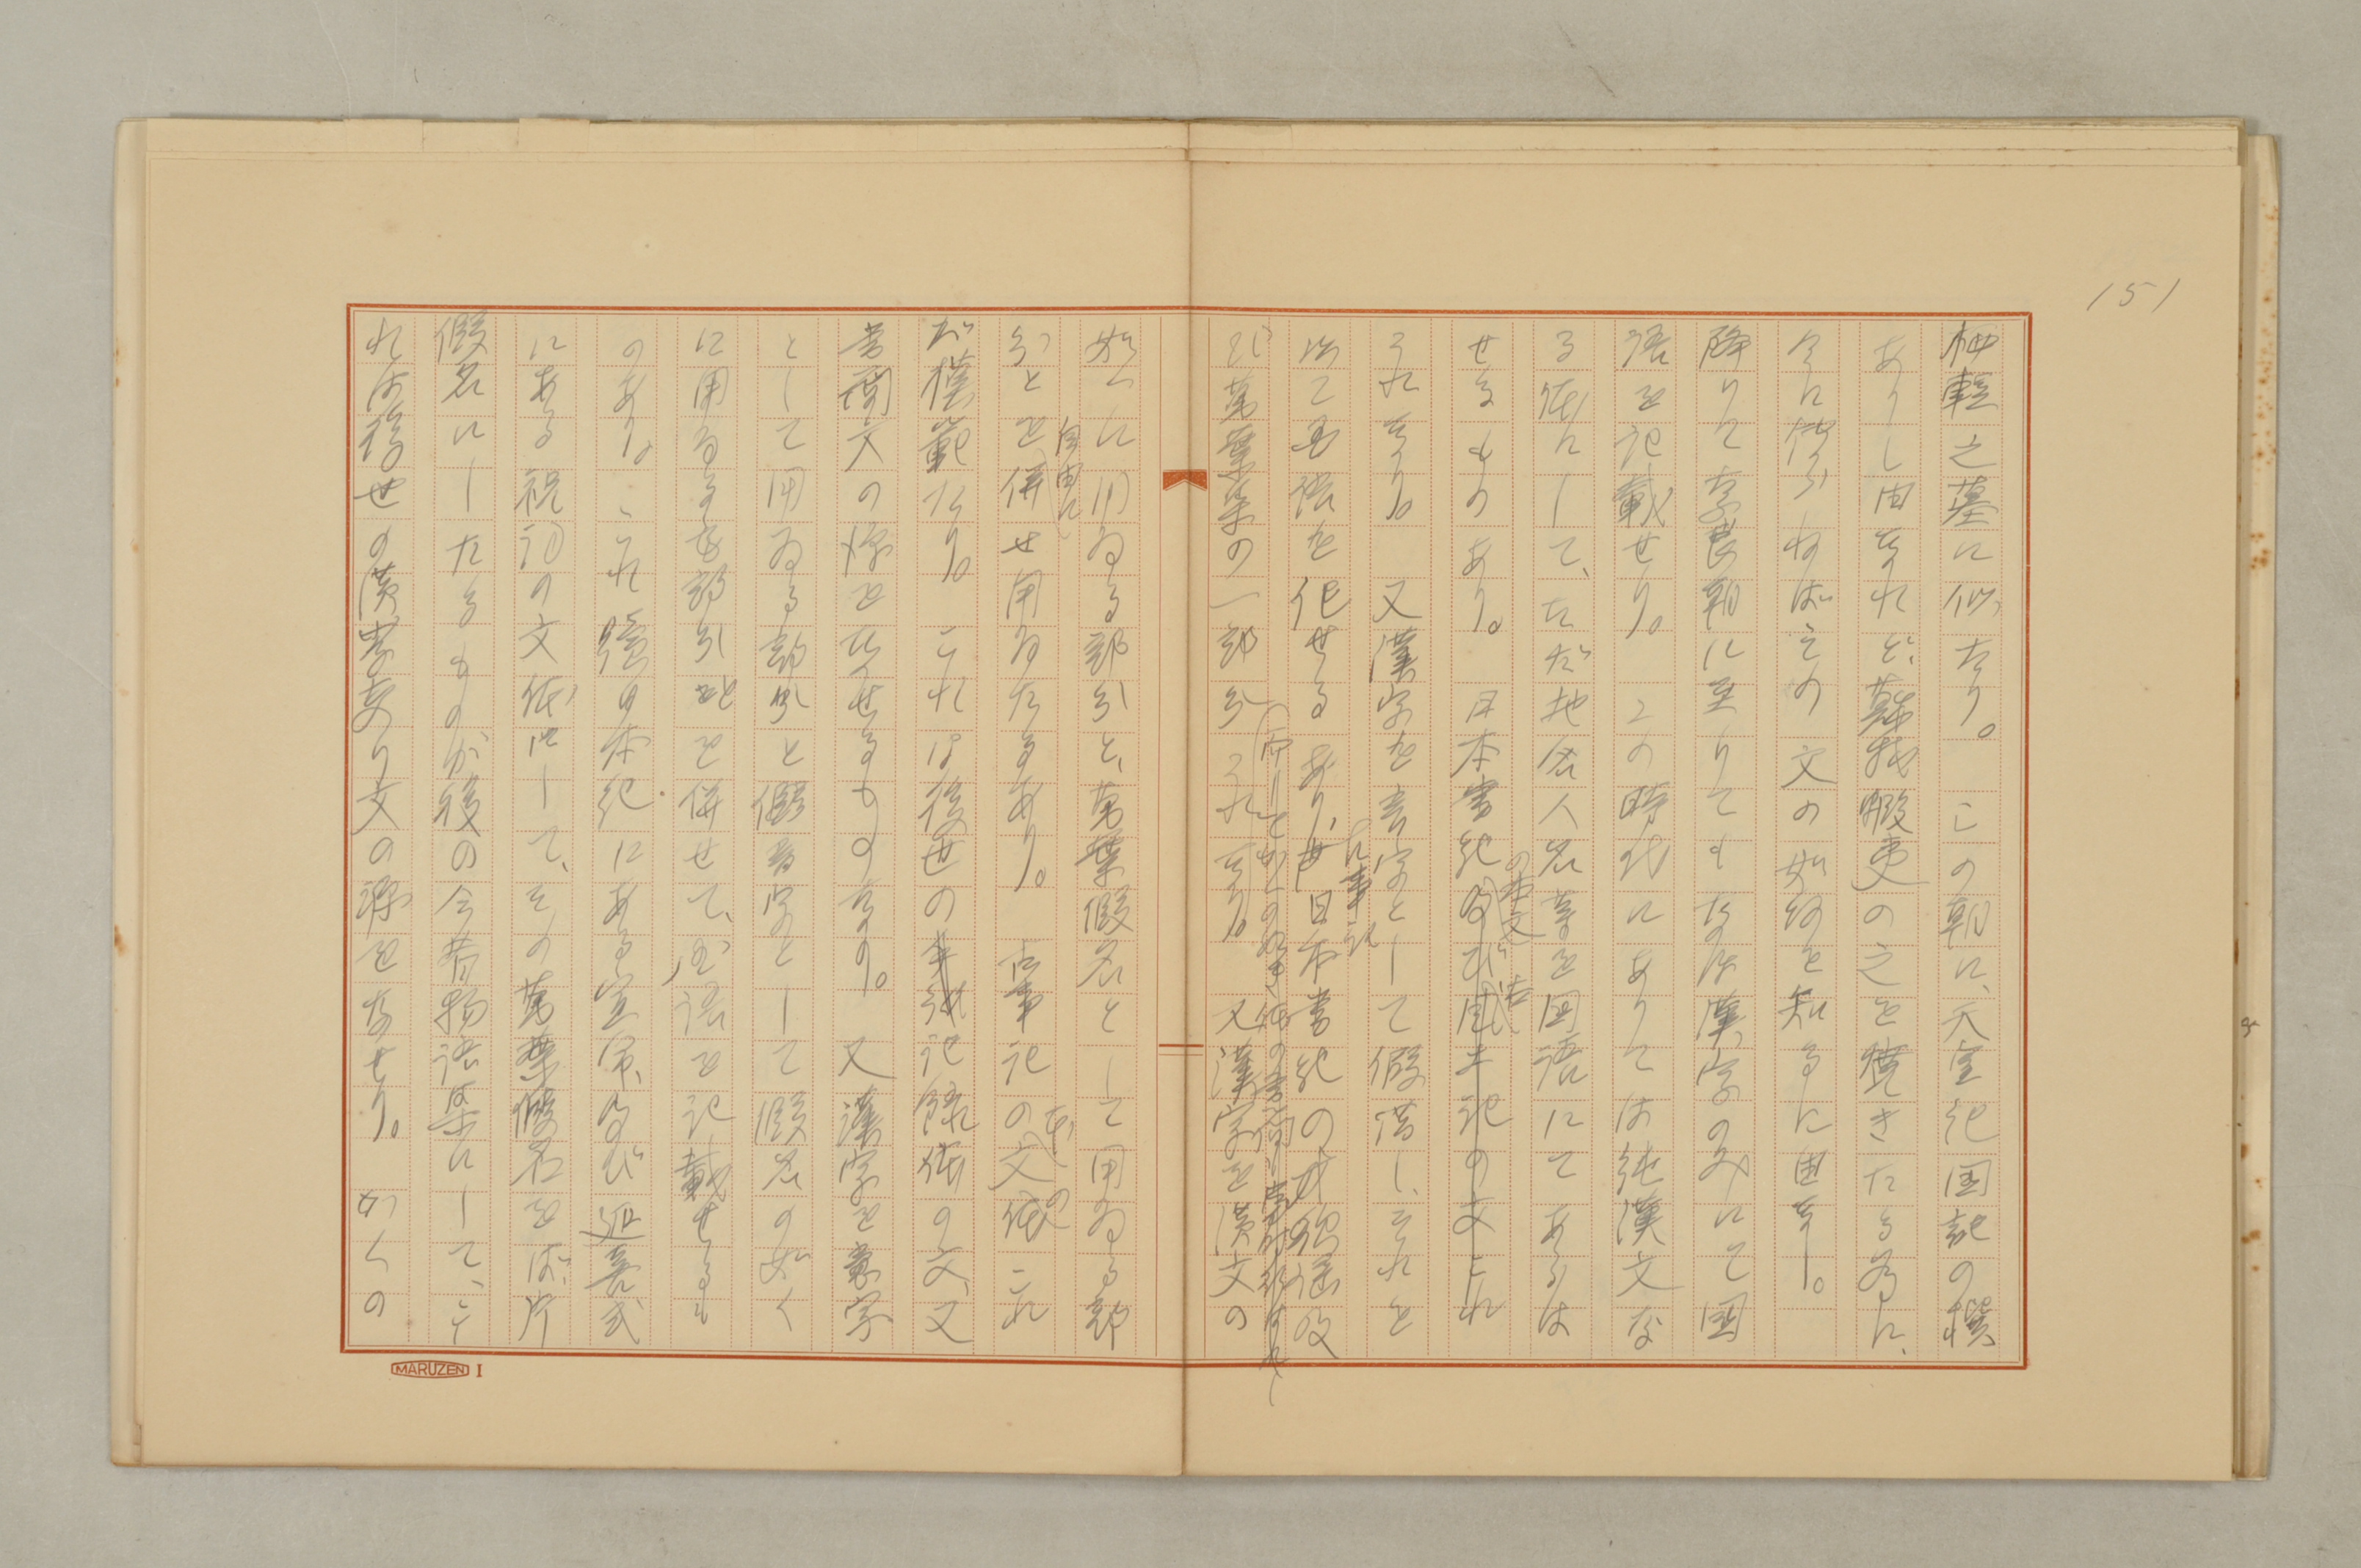 151
柚軽之墓に似たり。この朝に、天皇紀国記の撰
ありし由なれど、蘇我蝦夷の之を焼きたる為に、
今に伝はらねばその文の如何を知るに由なし。
降りて奈良朝に至りてもなほ漢字のみにて国
語を記載せり。この時代にありては純漢文な
る体にして、ただ地名人名等を国語にてあらは
せるものあり。日本書紀の本文
それなり。又漢字を音字として假借し、それを
以て国語を化せるあり、古事記日本書紀の歌謡及
び萬葉集の一部分それなり。又漢字を漢文の
如くに用ゐる部分と、萬葉假名として用ゐる部
分とを自由に併せ用ゐたるあり。古事記の本文のこれ
が模範たり。これは後世の記録体の文、又
書簡文の源をなせるものなり。又漢字を意字
として用ゐる部分と假音字として假名の如く
に用ゐるる部分とを併せて、国語を記載せるも
のあり。これ續日本紀にある宣命、及び延喜式
にある祝詞の文体にして、その萬葉假名を片
假名にしたるものが後の今昔物語集にして、こ
れは後世の漢字交り文の源をなせり。かくの
MARUZEN I